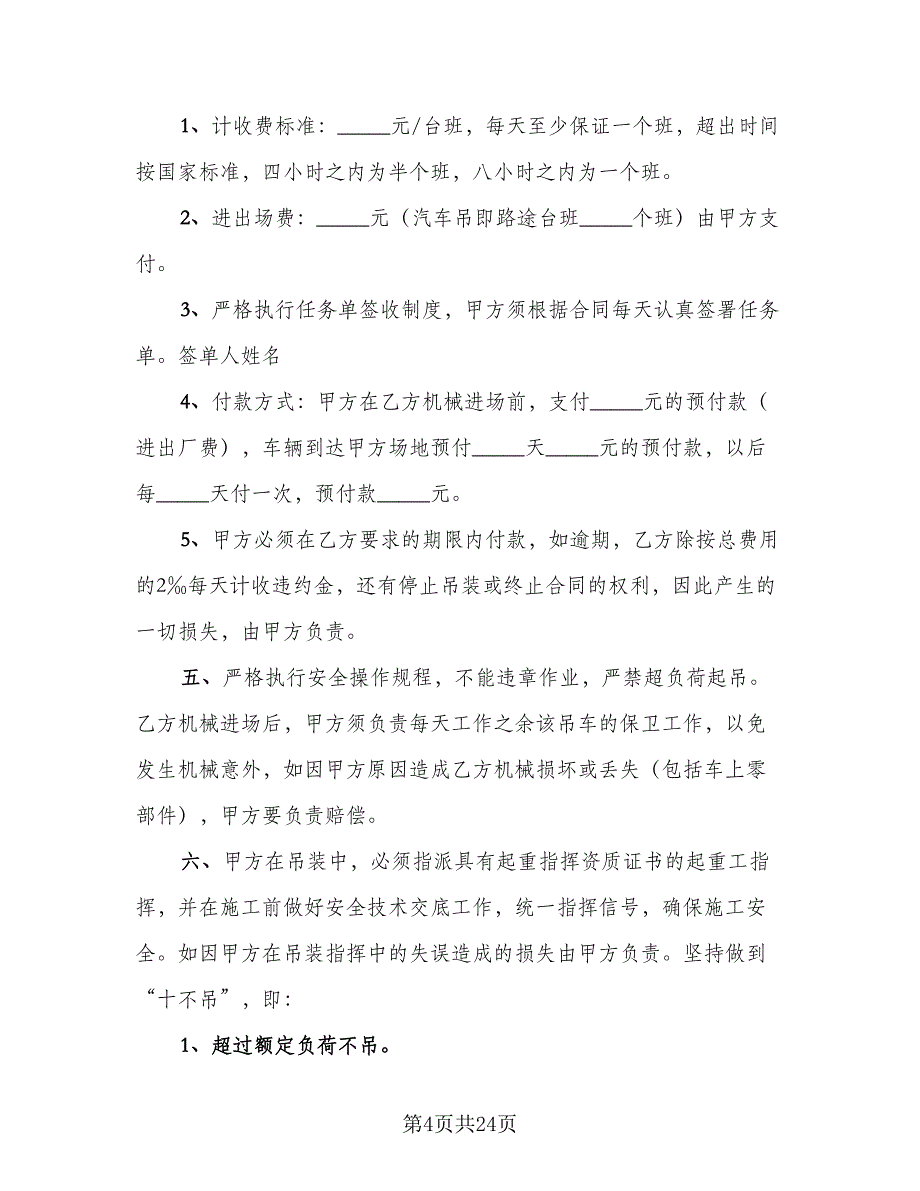 1、计收费标准：_____元/台班，每天至少保证一个班，超出时间
按国家标准，四小时之内为半个班，八小时之内为一个班。
2、进出场费：_____元（汽车吊即路途台班_____个班）由甲方支
付。
3、严格执行任务单签收制度，甲方须根据合同每天认真签署任务
单。签单人姓名
4、付款方式：甲方在乙方机械进场前，支付_____元的预付款（
进出厂费），车辆到达甲方场地预付_____天_____元的预付款，以后
每_____天付一次，预付款_____元。
5、甲方必须在乙方要求的期限内付款，如逾期，乙方除按总费用
的2‰每天计收违约金，还有停止吊装或终止合同的权利，因此产生的
一切损失，由甲方负责。
五、严格执行安全操作规程，不能违章作业，严禁超负荷起吊。
乙方机械进场后，甲方须负责每天工作之余该吊车的保卫工作，以免
发生机械意外，如因甲方原因造成乙方机械损坏或丢失（包括车上零
部件），甲方要负责赔偿。
六、甲方在吊装中，必须指派具有起重指挥资质证书的起重工指
挥，并在施工前做好安全技术交底工作，统一指挥信号，确保施工安
全。如因甲方在吊装指挥中的失误造成的损失由甲方负责。坚持做到
“十不吊”，即：
1、超过额定负荷不吊。
第4页共24页